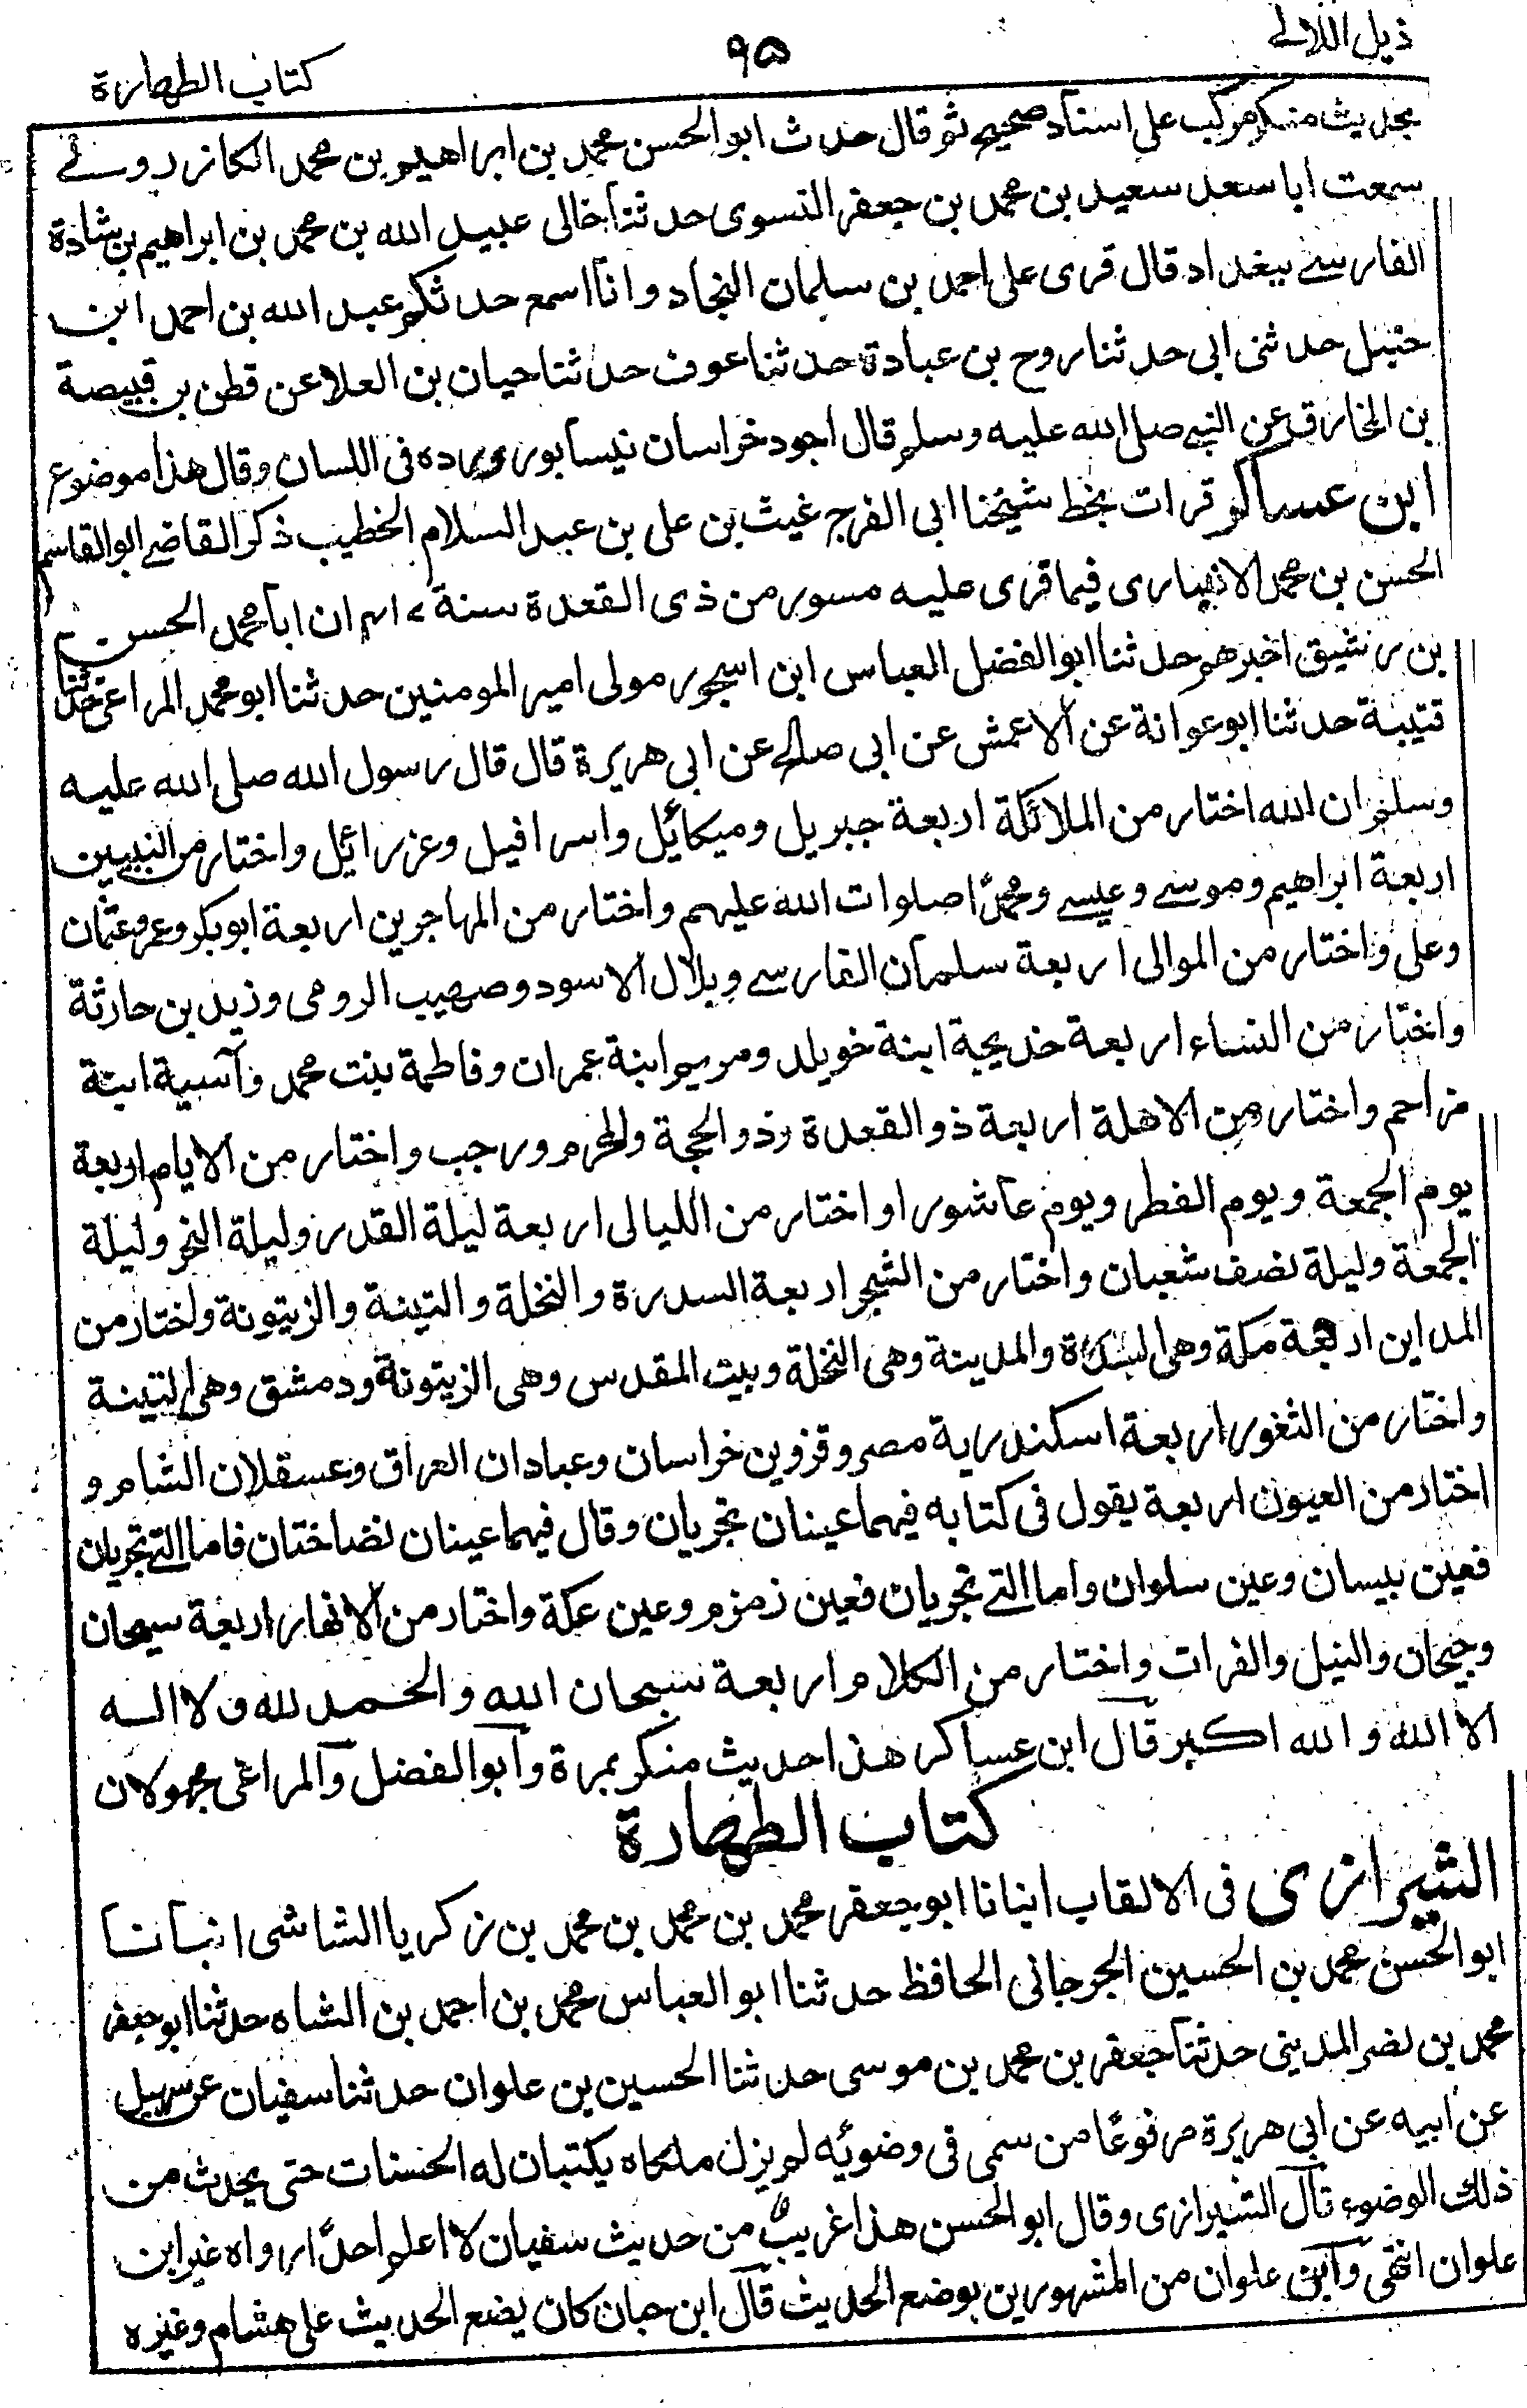 ذيل اللالے
٩٥
كتاب الطهارة
بحديث منكر مركب على اسناد صحيح ثم قال حدث ابو الحسن محمد بن ابراهيم بن محمد الكازروسنے
سمعت ابا سعد سعيد بن محمد بن جعفر النسوى حدثنا خالى عبيد الله بن محمد بن ابراهيم بن شاذة
الفارسے ببغداد قال قرى على احمد بن سلمان النجاد وانا اسمع حدثكم عبد الله بن احمد ابن
حنبل حدثنى ابى حدثنا روح بن عبادة حدثنا عوف حدثنا حيان بن العلا عن قطن بن قبيصة
بن المخارق عن النبے صلى الله عليه وسلم قال اجود خراسان نيسابور ورده فى اللسان وقال هذا موضوع
ابن عساكر قرات بخط شيخنا ابى الفرج غيث بن على بن عبد السلام الخطيب ذكر القاضے ابو القاسم
الحسن بن محمد الانبارى فيما قرى عليه مسور من ذى القعدة سنة ان ابا محمد الحسن
بن رشيق اخبرهم حدثنا ابو الفضل العباس ابن اسجور مولى امير المومنين حدثنا ابو محمد المراغى حدثنا
قتيبة حدثنا ابو عوانة عن الاعمش عن ابى صالح عن ابى هريرة قال قال رسول الله صلى الله عليه
وسلم ان الله اختار من الملائكة اربعة جبريل وميكائيل واسرافيل وعزرائيل واختار من النبيين
اربعة ابراهيم وموسے وعيسے ومحمدًا صلوات الله عليهم واختار من المهاجرين اربعة ابوبكر وعمر وعثمان
وعلى واختار من الموالى اربعة سلمان الفارسے وبلال الاسود وصهيب الرومى وزيد بن حارثة
واختار من النساء اربعة خديجة ابنة خويلد ومريم ابنة عمران وفاطمة بنت محمد وآسية ابنة
مزاحم واختار من الاهلة اربعة ذو القعدة وذو الحجة والمحرم ورجب واختار من الايام اربعة
يوم الجمعة ويوم الفطر ويوم عاشورا واختار من الليالى اربعة ليلة القدر وليلة النحر وليلة
الجمعة وليلة نصف شعبان واختار من الشجر اربعة السدرة والنخلة والتينة والزيتونة واختار من
المداين اربعة مكة وهى السدرة والمدينة وهى النخلة وبيت المقدس وهى الزيتونة ودمشق وهى التينة
واختار من الثغور اربعة اسكندرية مصر وقزوين خراسان وعبادان العراق وعسقلان الشام و
اختار من العيون اربعة يقول فى كتابه فيهما عينان تجريان وقال فيهما عينان نضاختان فاما التے تجريان
فعين بيسان وعين سلوان واما التے تجريان فعين زمزم وعين عكة واختار من الانهار اربعة سيحان
وجيحان والنيل والفرات واختار من الكلام اربعة سبحان الله والحمد لله ولا اله
الا الله والله اكبر قال ابن عساكر هذا حديث منكر بمرة وابو الفضل والمراغى مجهولان
كتاب الطهارة
الشيرازى فى الالقاب انبانا ابو جعفر محمد بن محمد بن محمد بن زكريا الشاشى انبانا
ابو الحسن محمد بن الحسين الجرجانى الحافظ حدثنا ابو العباس محمد بن احمد بن الشاه حدثنا ابو جعفر
محمد بن نصر المدينى حدثنا جعفر بن محمد بن موسى حدثنا الحسين بن علوان حدثنا سفيان عن سهيل
عن ابيه عن ابى هريرة مرفوعًا من سمى فى وضوئه لم يزل ملكاه يكتبان له الحسنات حتى يحدث من
ذلك الوضوء قال الشيرازى وقال ابو الحسن هذا غريب من حديث سفيان لا اعلم احدًا رواه غير ابن
علوان انتهى وابن علوان من المشهورين بوضع الحديث قال ابن حبان كان يضع الحديث على هشام وغيره